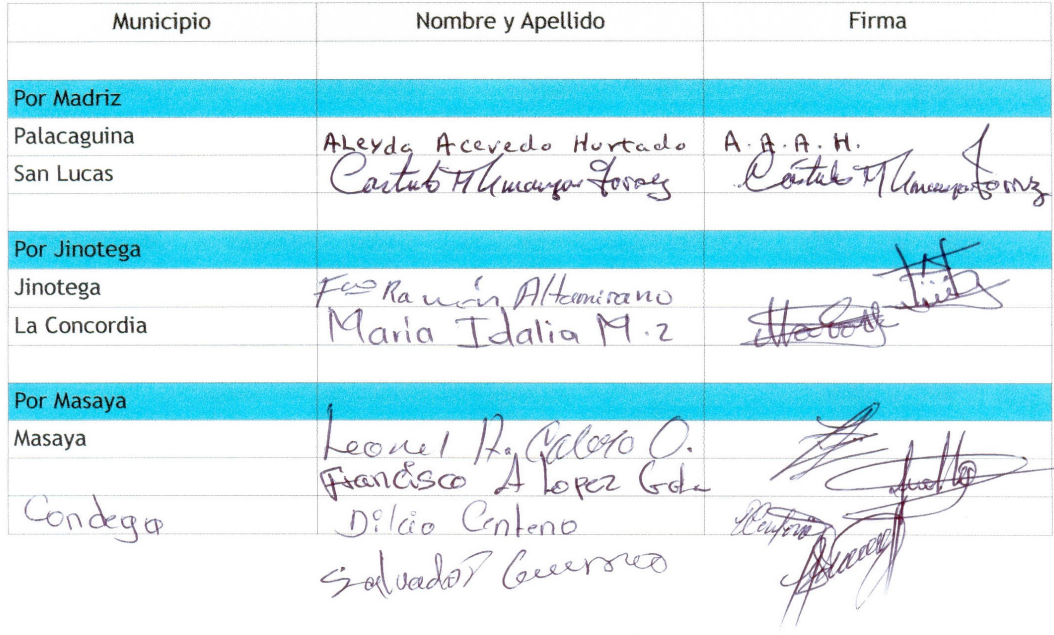 Municipio Nombre y Apellido Firma
Por Madriz
Palacaguina ALeyda Acevedo Hurtado A.A.A.H.
San Lucas Cástulo M
Por Jinotega
Jinotega Fco Ramón Altamirano
La Concordia Maria Idalia M.z
Por Masaya
Masaya Leonel A. Calero O.
Francisco A Lopez Gdo
Condega Dilcio Centeno
Salvador Guerrero